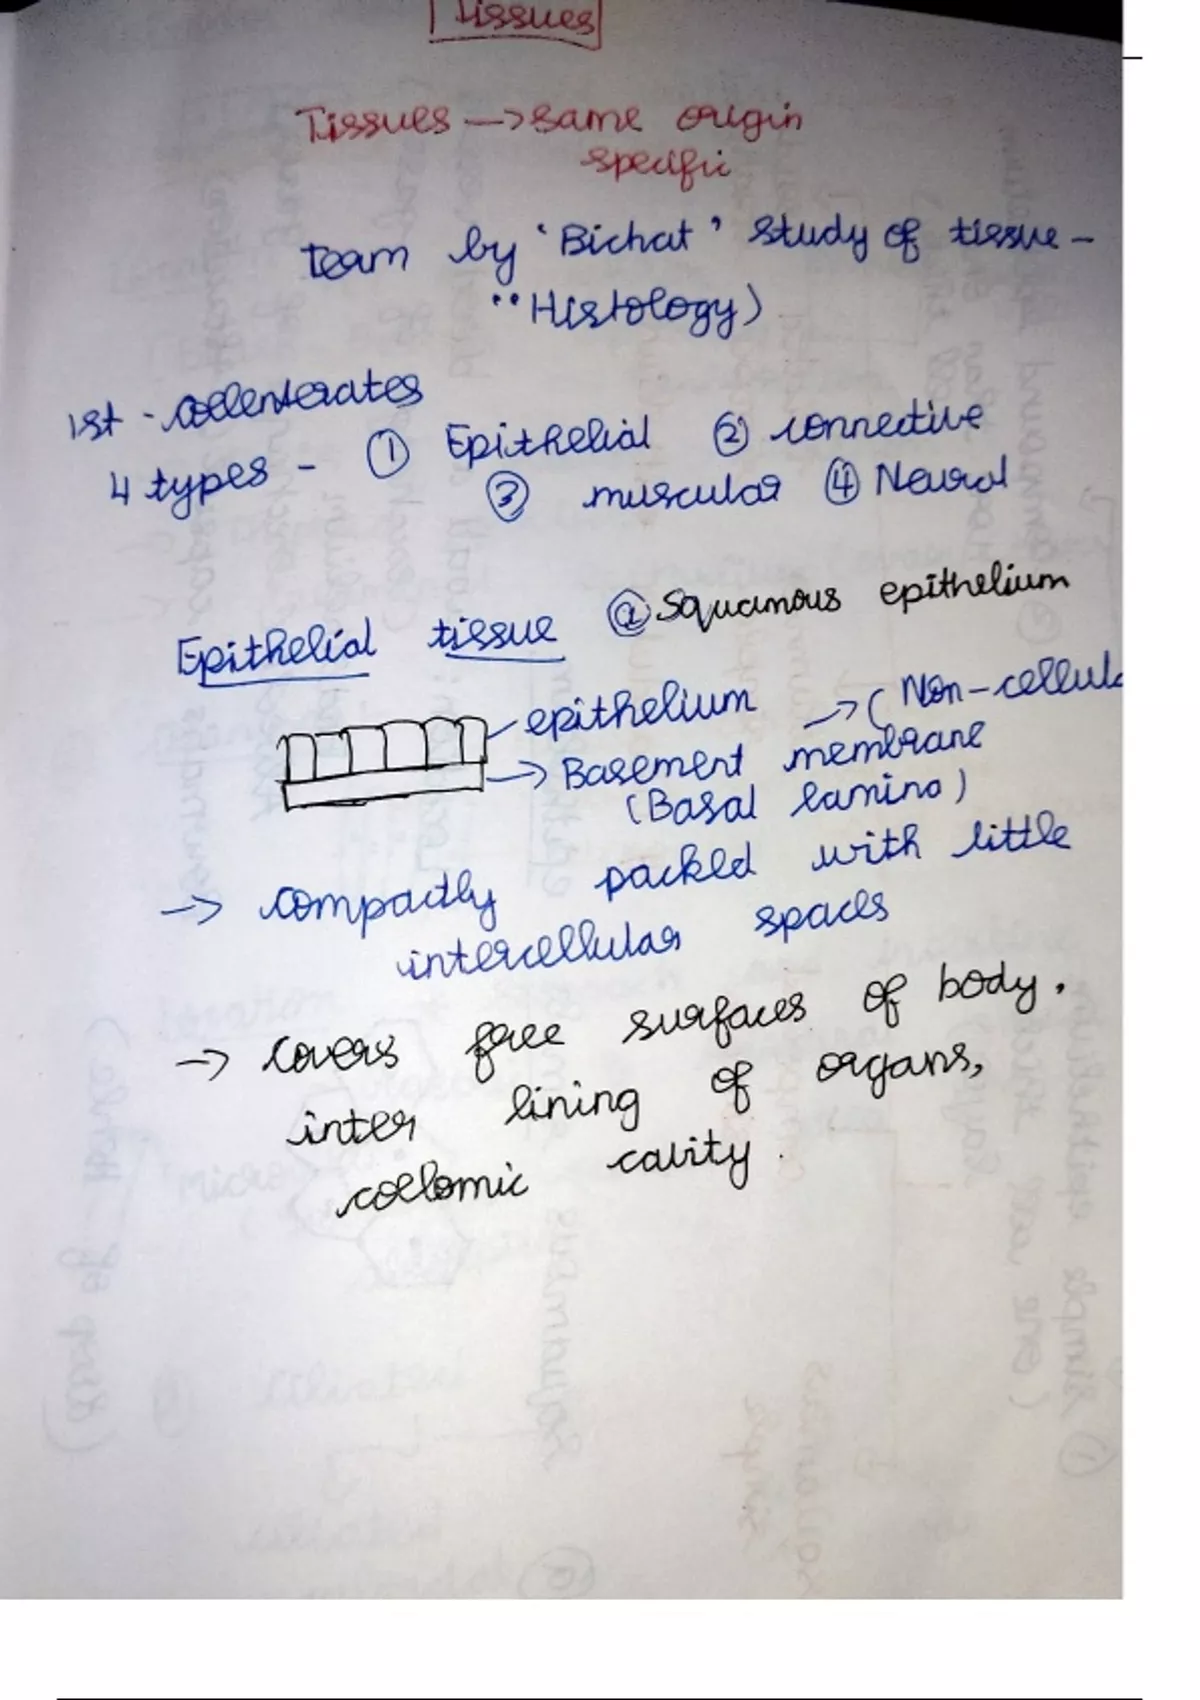 Tissues
Tissues → same origin
specific
team by ‘Bichat’ study of tissue -
“Histology)
1st - coelenterates
4 types - ① Epithelial ② connective
③ muscular ④ Neural
Epithelial tissue ⓐ Squamous epithelium
epithelium → ( Non-cellula
→ Basement membrane
(Basal lamina)
→ compactly packed with little
intercellular spaces
→ covers free surfaces of body.
inter lining of organs,
coelomic cavity.